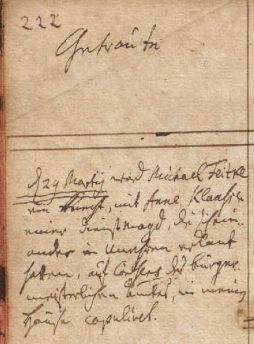 222
Getraute
d 29 Martij ward Michael Feitke
ein Knecht, mit Anne Klaassen
einer Dienstmagd, die sich ein-
ander in Unehren erkant
hatten, auf Consens des bürger-
meisterlichen Amtes, in meinem
Hause copuliret.